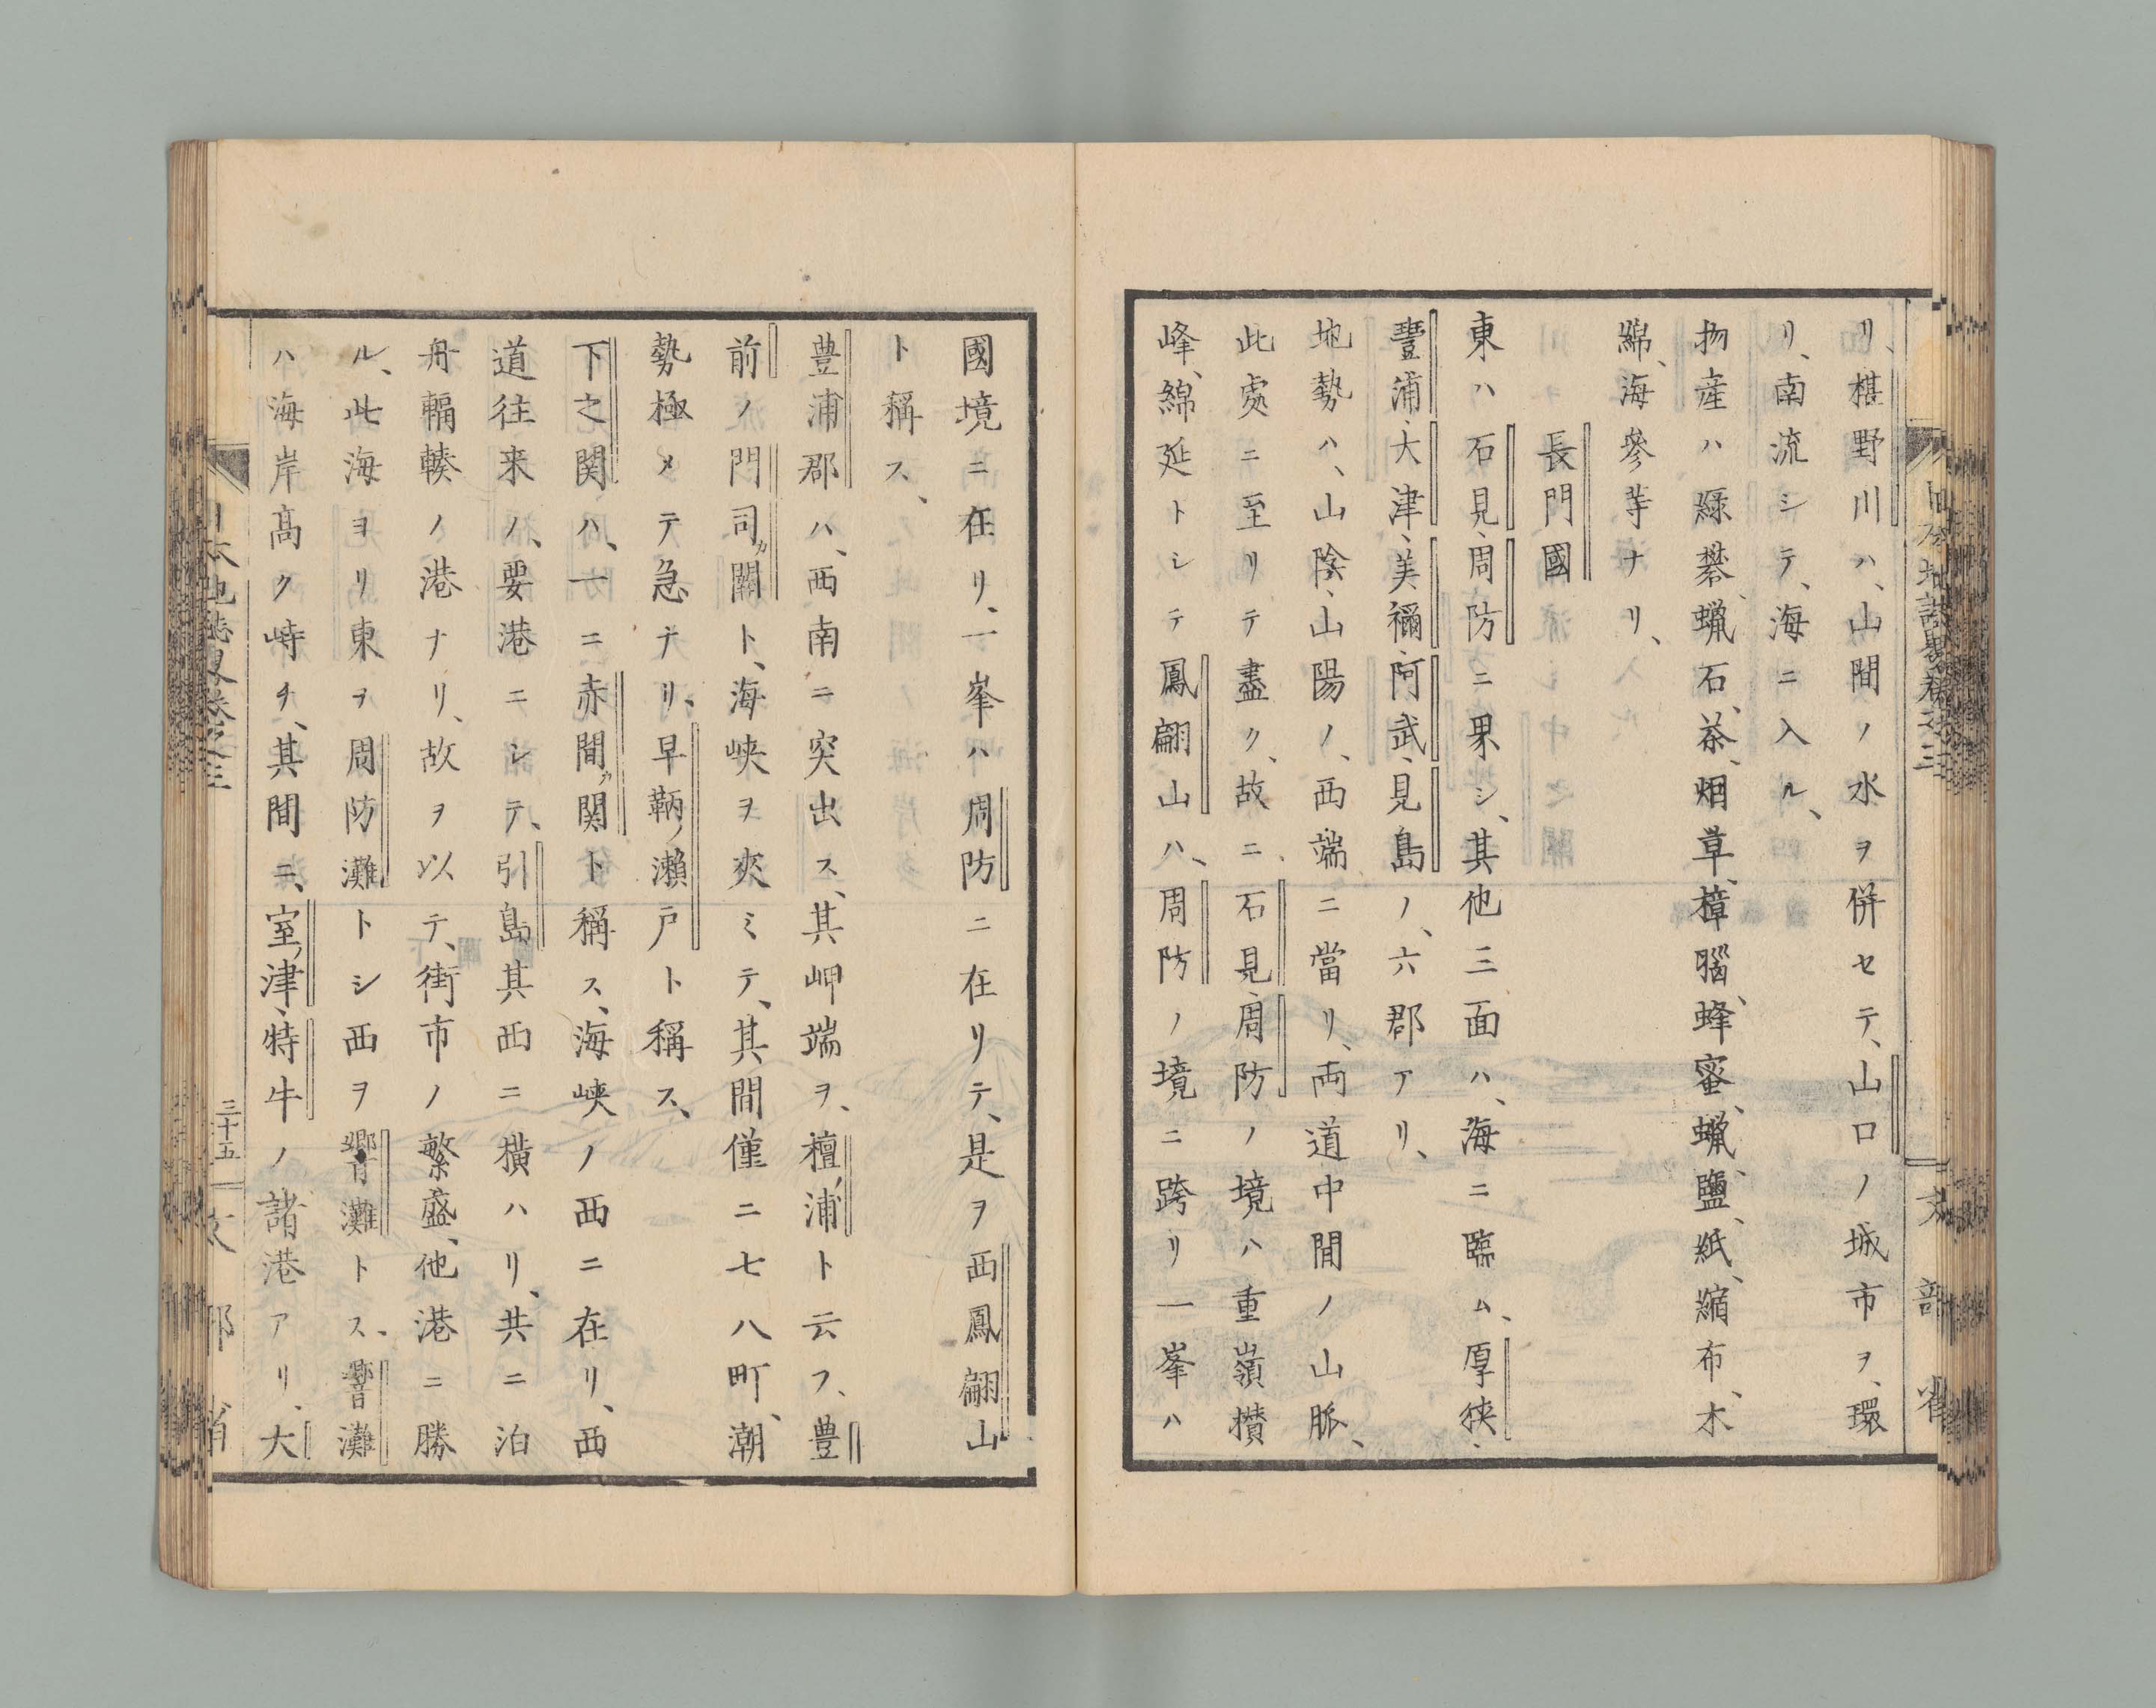 リ、椹野川ハ、山間ノ水ヲ併セテ、山口ノ城市ヲ、環
リ、南流シテ、海ニ入ル、
物産ハ緑礬、蝋石、茶、烟草、樟腦、蜂蜜、蝋、鹽、紙、縮布、木
綿、海參等ナリ、
長門國
東ハ石見、周防ニ界シ、其他三面ハ、海ニ臨ム、厚狹、
豐浦、大津、美禰、阿武、見島ノ、六郡アリ、
地勢ハ、山陰、山陽ノ、西端ニ當リ、両道中間ノ山脈、
此處ニ至リテ盡ク、故ニ石見、周防ノ境ハ重嶺攅
峰、綿延トシテ鳳翩山ハ、周防ノ境ニ跨リ一峯ハ
國境ニ在リ、一峯ハ周防ニ在リテ、是ヲ西鳳翩山
ト稱ス、
豊浦郡ハ、西南ニ突出ス、其岬端ヲ、檀ノ浦ト云フ、豊
前ノ門司カ關ト、海峽ヲ夾ミテ、其間僅ニ七八町、潮
勢極メテ急ナリ、早鞆ノ瀬戸ト稱ス、
下之関ハ、一ニ赤間カ関ト稱ス、海峽ノ西ニ在リ、西
道往来ノ、要港ニシテ、引島其西ニ横ハリ、共ニ泊
舟輻輳ノ港ナリ、故ヲ以テ、街市ノ繁盛、他港ニ勝
ル、此海ヨリ東ヲ周防灘トシ西ヲ響灘トス、響灘
ハ海岸高ク峙チ、其間ニ、室ノ津、特牛ノ諸港アリ、大
日本地誌畧卷之三
三十五
文部省